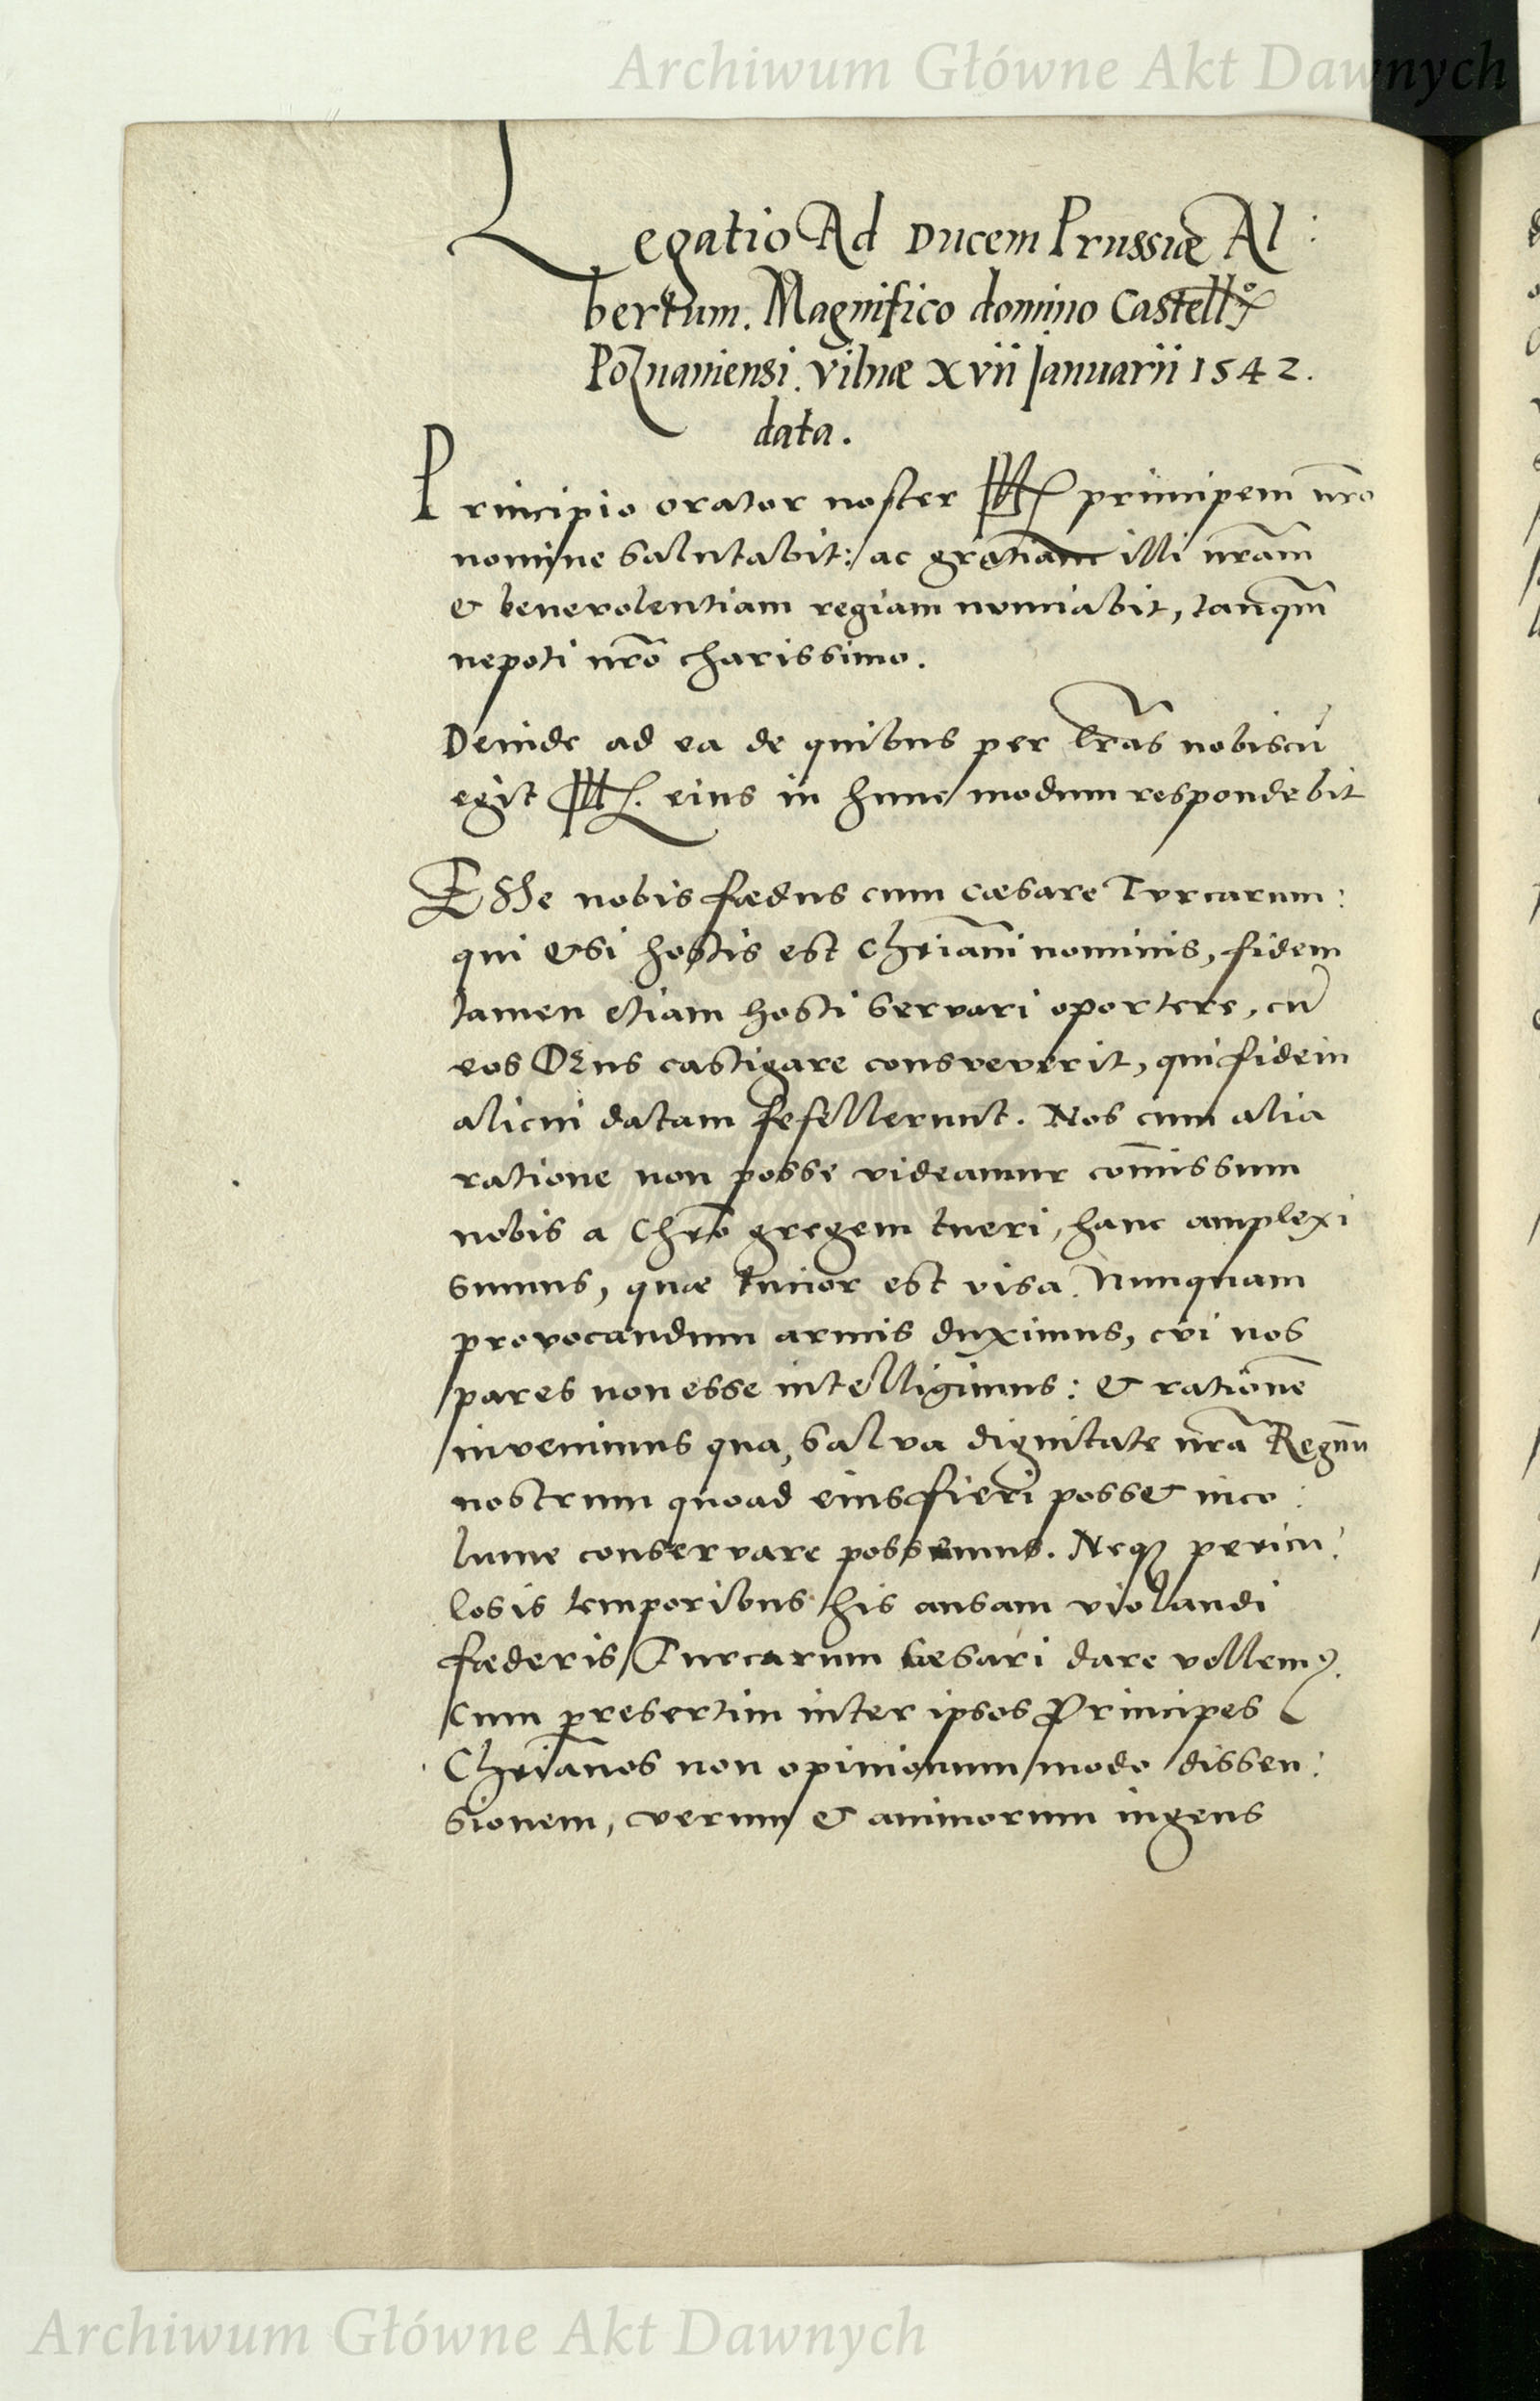 Archiwum Główne Akt Dawnych
Legatio Ad Ducem Prussiæ Al:
bertum. Magnifico domino Castellº
Poznaniensi. Vilnæ XVII Januarii 1542.
data.
Principio orator noster Ill principem nro
nomine salutabit: ac gratiam illi nram
& benevolentiam regiam nunciabit, tanqm
nepoti nro charissimo.
Deinde ad ea de quibus per lras nobiscu
egit Ill. eius in hunc modum respondebit
Esse nobis fœdus cum cæsare Turcarum:
qui etsi hostis est Chriani nominis, fidem
tamen etiam hosti servari oportere, cu
eos Deus castigare consveverit, qui fidem
alicui datam fefellerunt. Nos cum alia
ratione non posse videamur comissum
nobis a Chro gregem tueri, hanc amplexi
sumus, quæ tucior est visa. Nunquam
provocandum armis duximus, cui nos
pares non esse intelligimus: & ratione
invenimus qua, salva dignitate nra Regnu
nostrum quoad eius fieri posset inco:
lume conservare possemus. Neqz pericu:
losis temporibus his ansam violandi
fœderis Turcarum Cæsari dare vellem9.
Cum presertim inter ipsos Principes
Chrianos non opinionum modo dissen:
sionem, verum & animorum ingens
Archiwum Główne Akt Dawnych